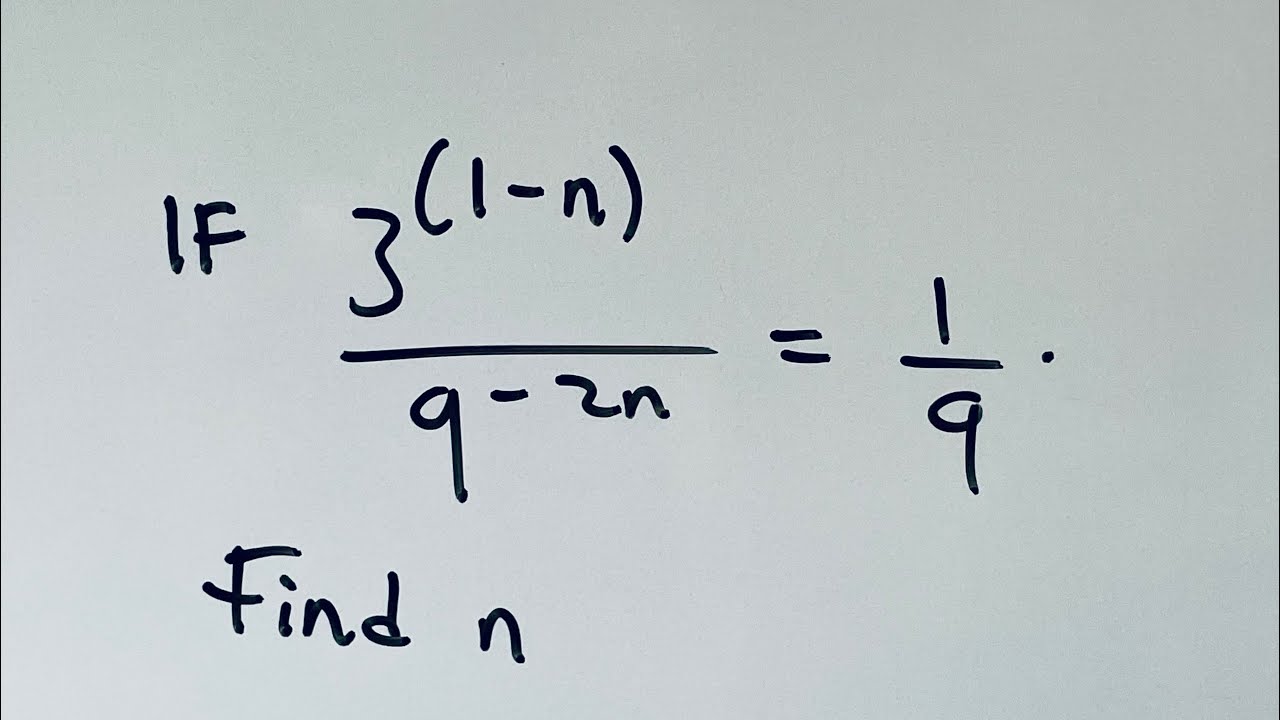 IF 3^(1-n) / 9^-2n = 1/9 .
Find n